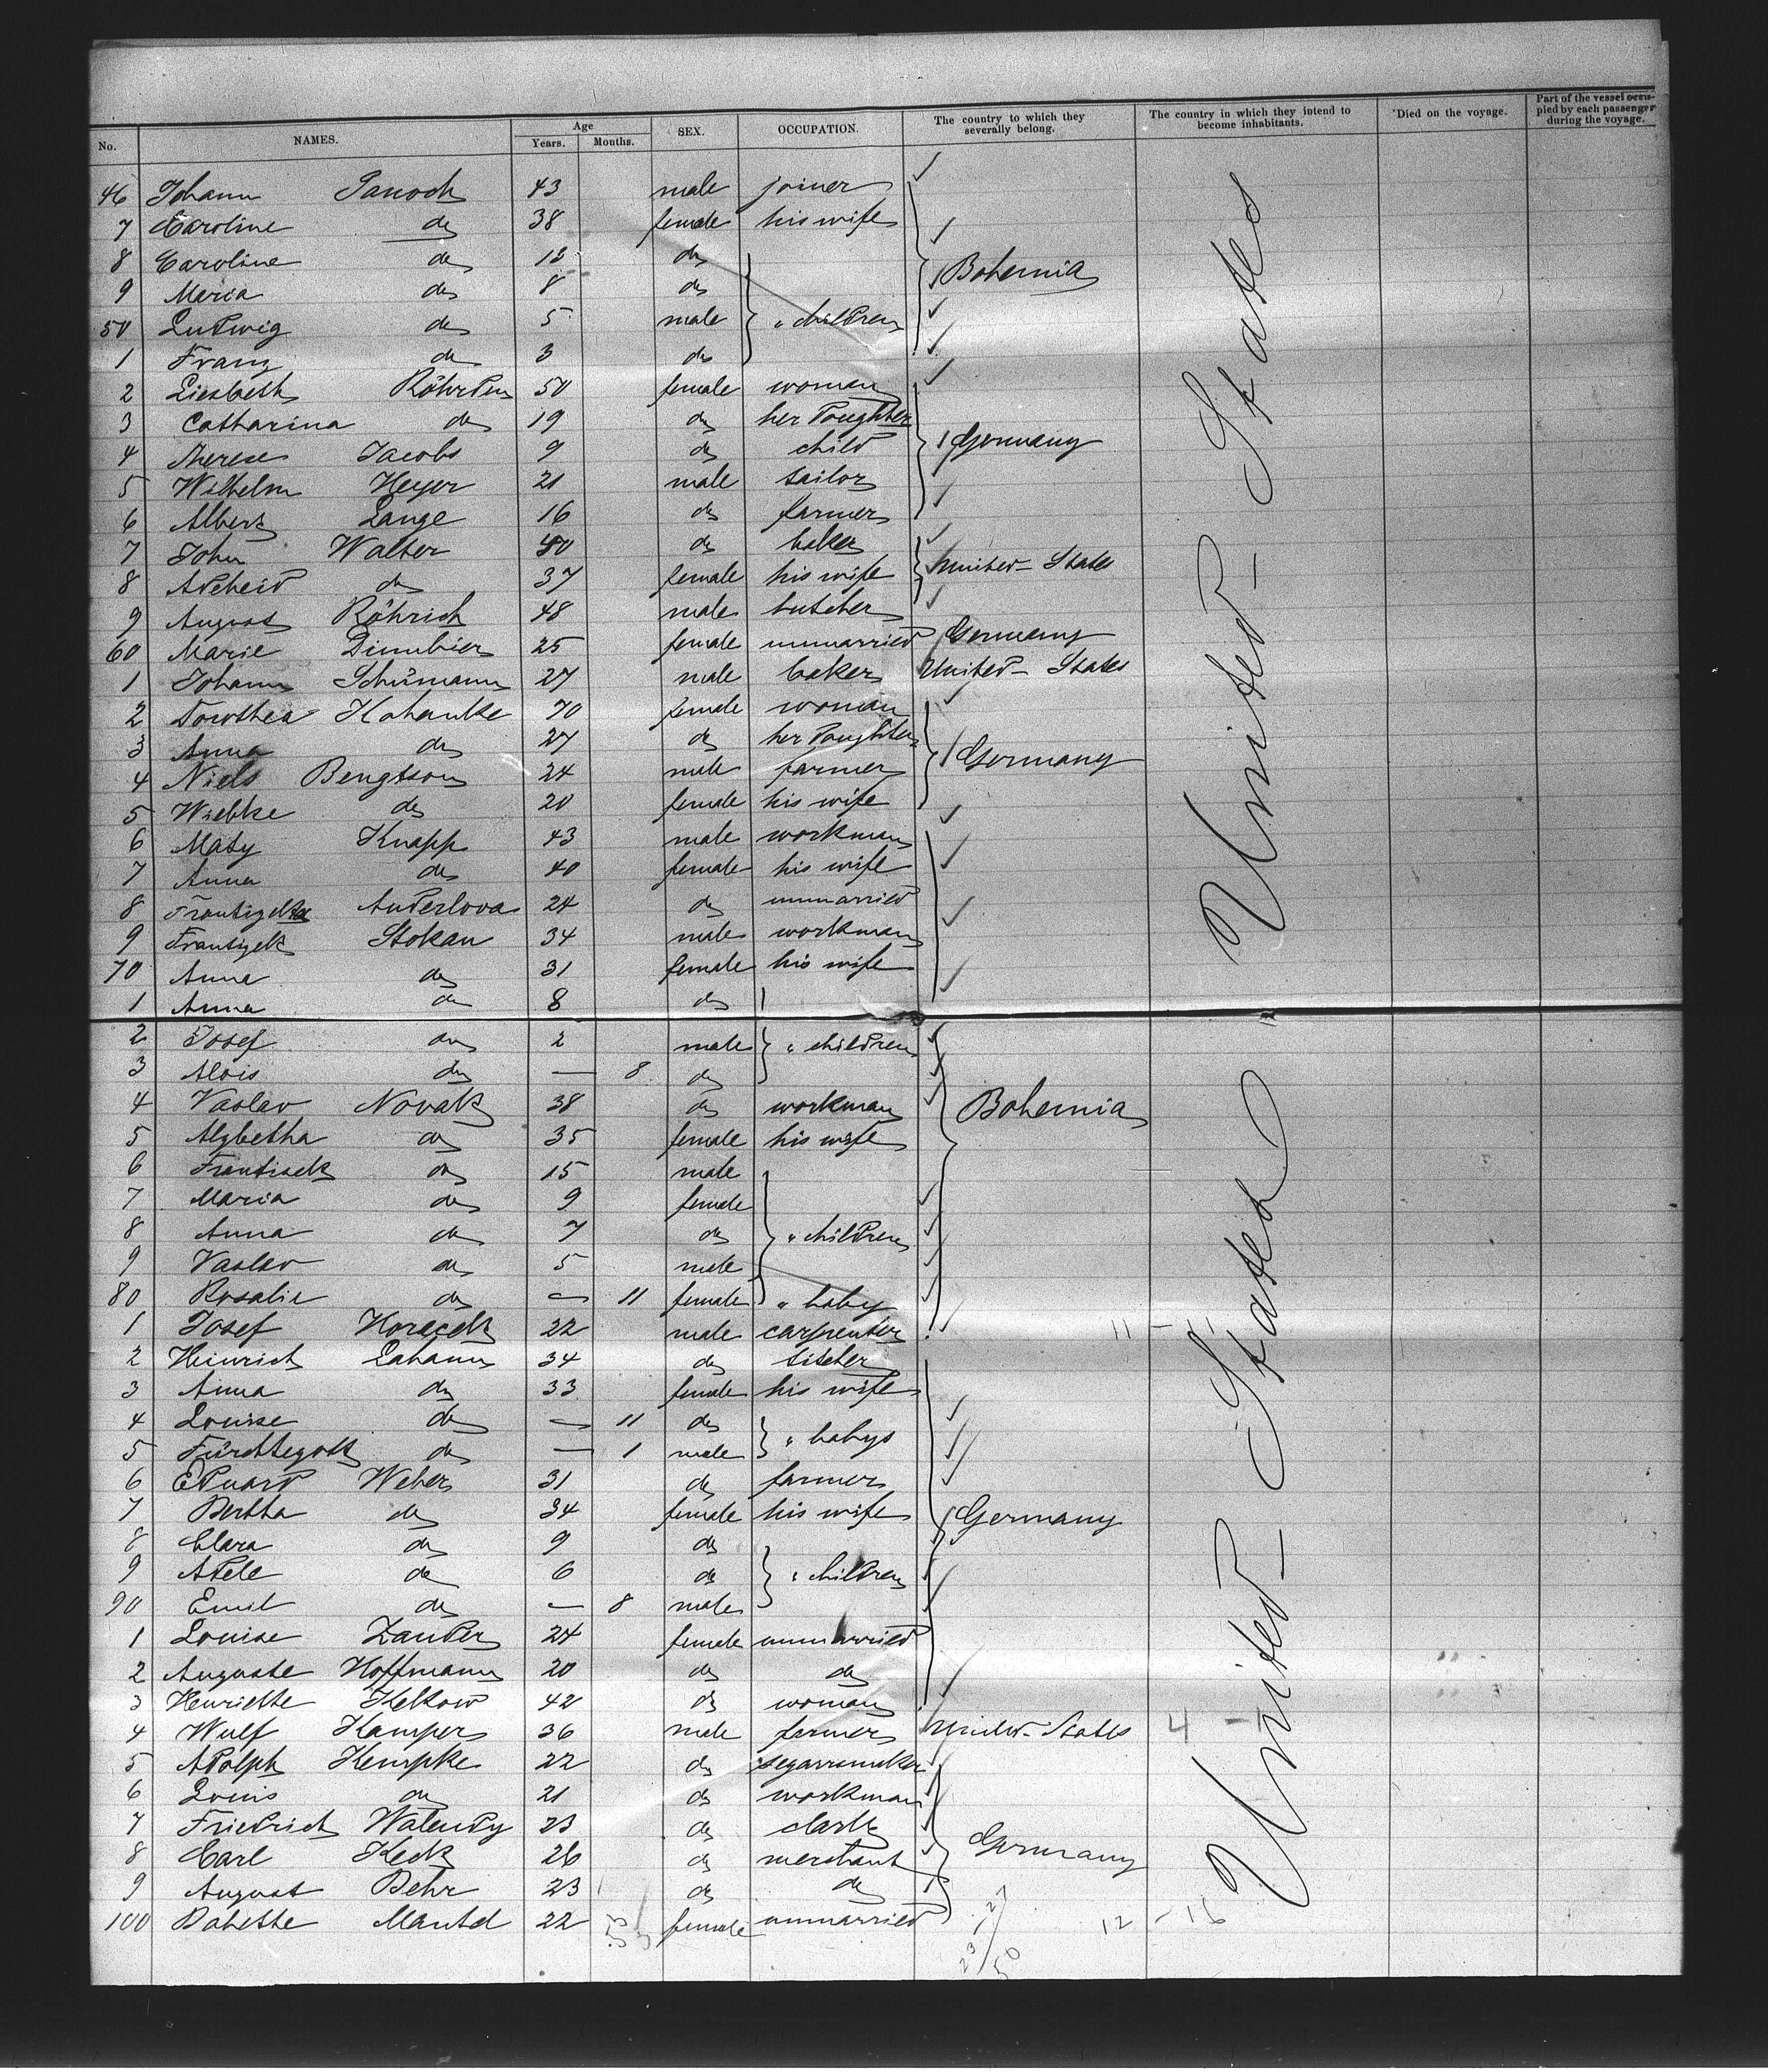 No. NAMES. Age Years. Months. SEX. OCCUPATION. The country to which they severally belong. The country in which they intend to become inhabitants. Died on the voyage. Part of the vessel occupied by each passenger during the voyage.
46 Johann Janoch 43 male joiner
7 Caroline do 38 female his wife
8 Caroline do do
9 Maria do 8 do Bohemia
50 Ludwig do 5 male " children
1 Franz do 3 do
2 Liesbeth 50 female woman
3 Catharina do 19 do her doughter
4 Therese Jacobs 9 do child Germany
5 Wilhelm Heyer 21 male tailor
6 Albert Lange 16 do farmer
7 John Walter 40 do baker
8 Adeheid do 37 female his wife United-States
9 August Röhrich 48 male butcher
60 Marie 25 female unmarried Germany
1 Johann Schümann 27 male baker United-States
2 Dorothea Kohanke 70 female woman
3 Anna do 27 do her doughter
4 Niels Bengtson 24 male farmer Germany
5 Wiebke do 20 female his wife
6 Maty Knapp 43 male workman
7 Anna do 40 female his wife
8 Anderlova 24 do unmarried
9 Frantizek Stokan 34 male workman
70 Anna do 31 female his wife
1 Anna do 8 do
2 Josef do 2 male " children
3 Alois do — 8 do
4 Vaslav Novak 38 do workman Bohemia
5 Alzbetha do 35 female his wife
6 Frantisek do 15 male
7 Maria do 9 female
8 Anna do 7 do " children
9 Vaslav do 5 male
80 Rosalie do — 11 female " baby
1 Josef Horacek 22 male carpenter
2 Heinrich Lahann 34 do
3 Anna do 33 female his wife
4 Louise do — 11 do " babys
5 Fürchtegott do — 1 male
6 Eduard Weber 31 do farmer
7 Bertha do 34 female his wife Germany
8 Clara do 9 do
9 Adele do 6 do " children
90 Emil do — 8 male
1 Louise Zander 24 female unmarried
2 Auguste Hoffmann 20 do do
3 Henriette Kelkow 42 do woman
4 Wulf Kamper 36 male farmer United-States 4 -
5 Adolph Hempke 22 do segarrmaker
6 Louis do 21 do workman
7 Friedrich Walendy 23 do clark
8 Carl Keck 26 do merchant Germany
9 August Behr 23 do do
100 Babette Mantel 22 female unmarried 12 - 16
United-States
United-States